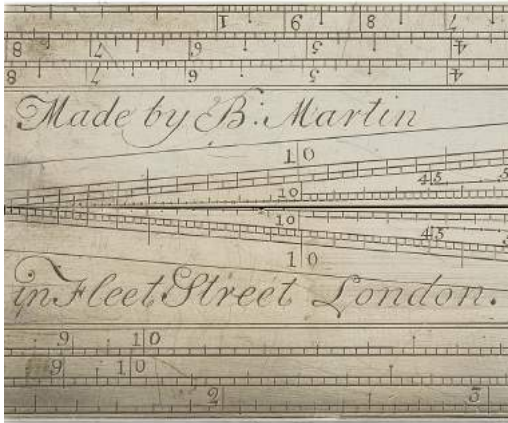 1 9 8 7
8 7 6 5 4
8 7 6 5 4
Made by B: Martin
10
45
10
10
45
10
in Fleet Street London.
9 10
9 10
2 3